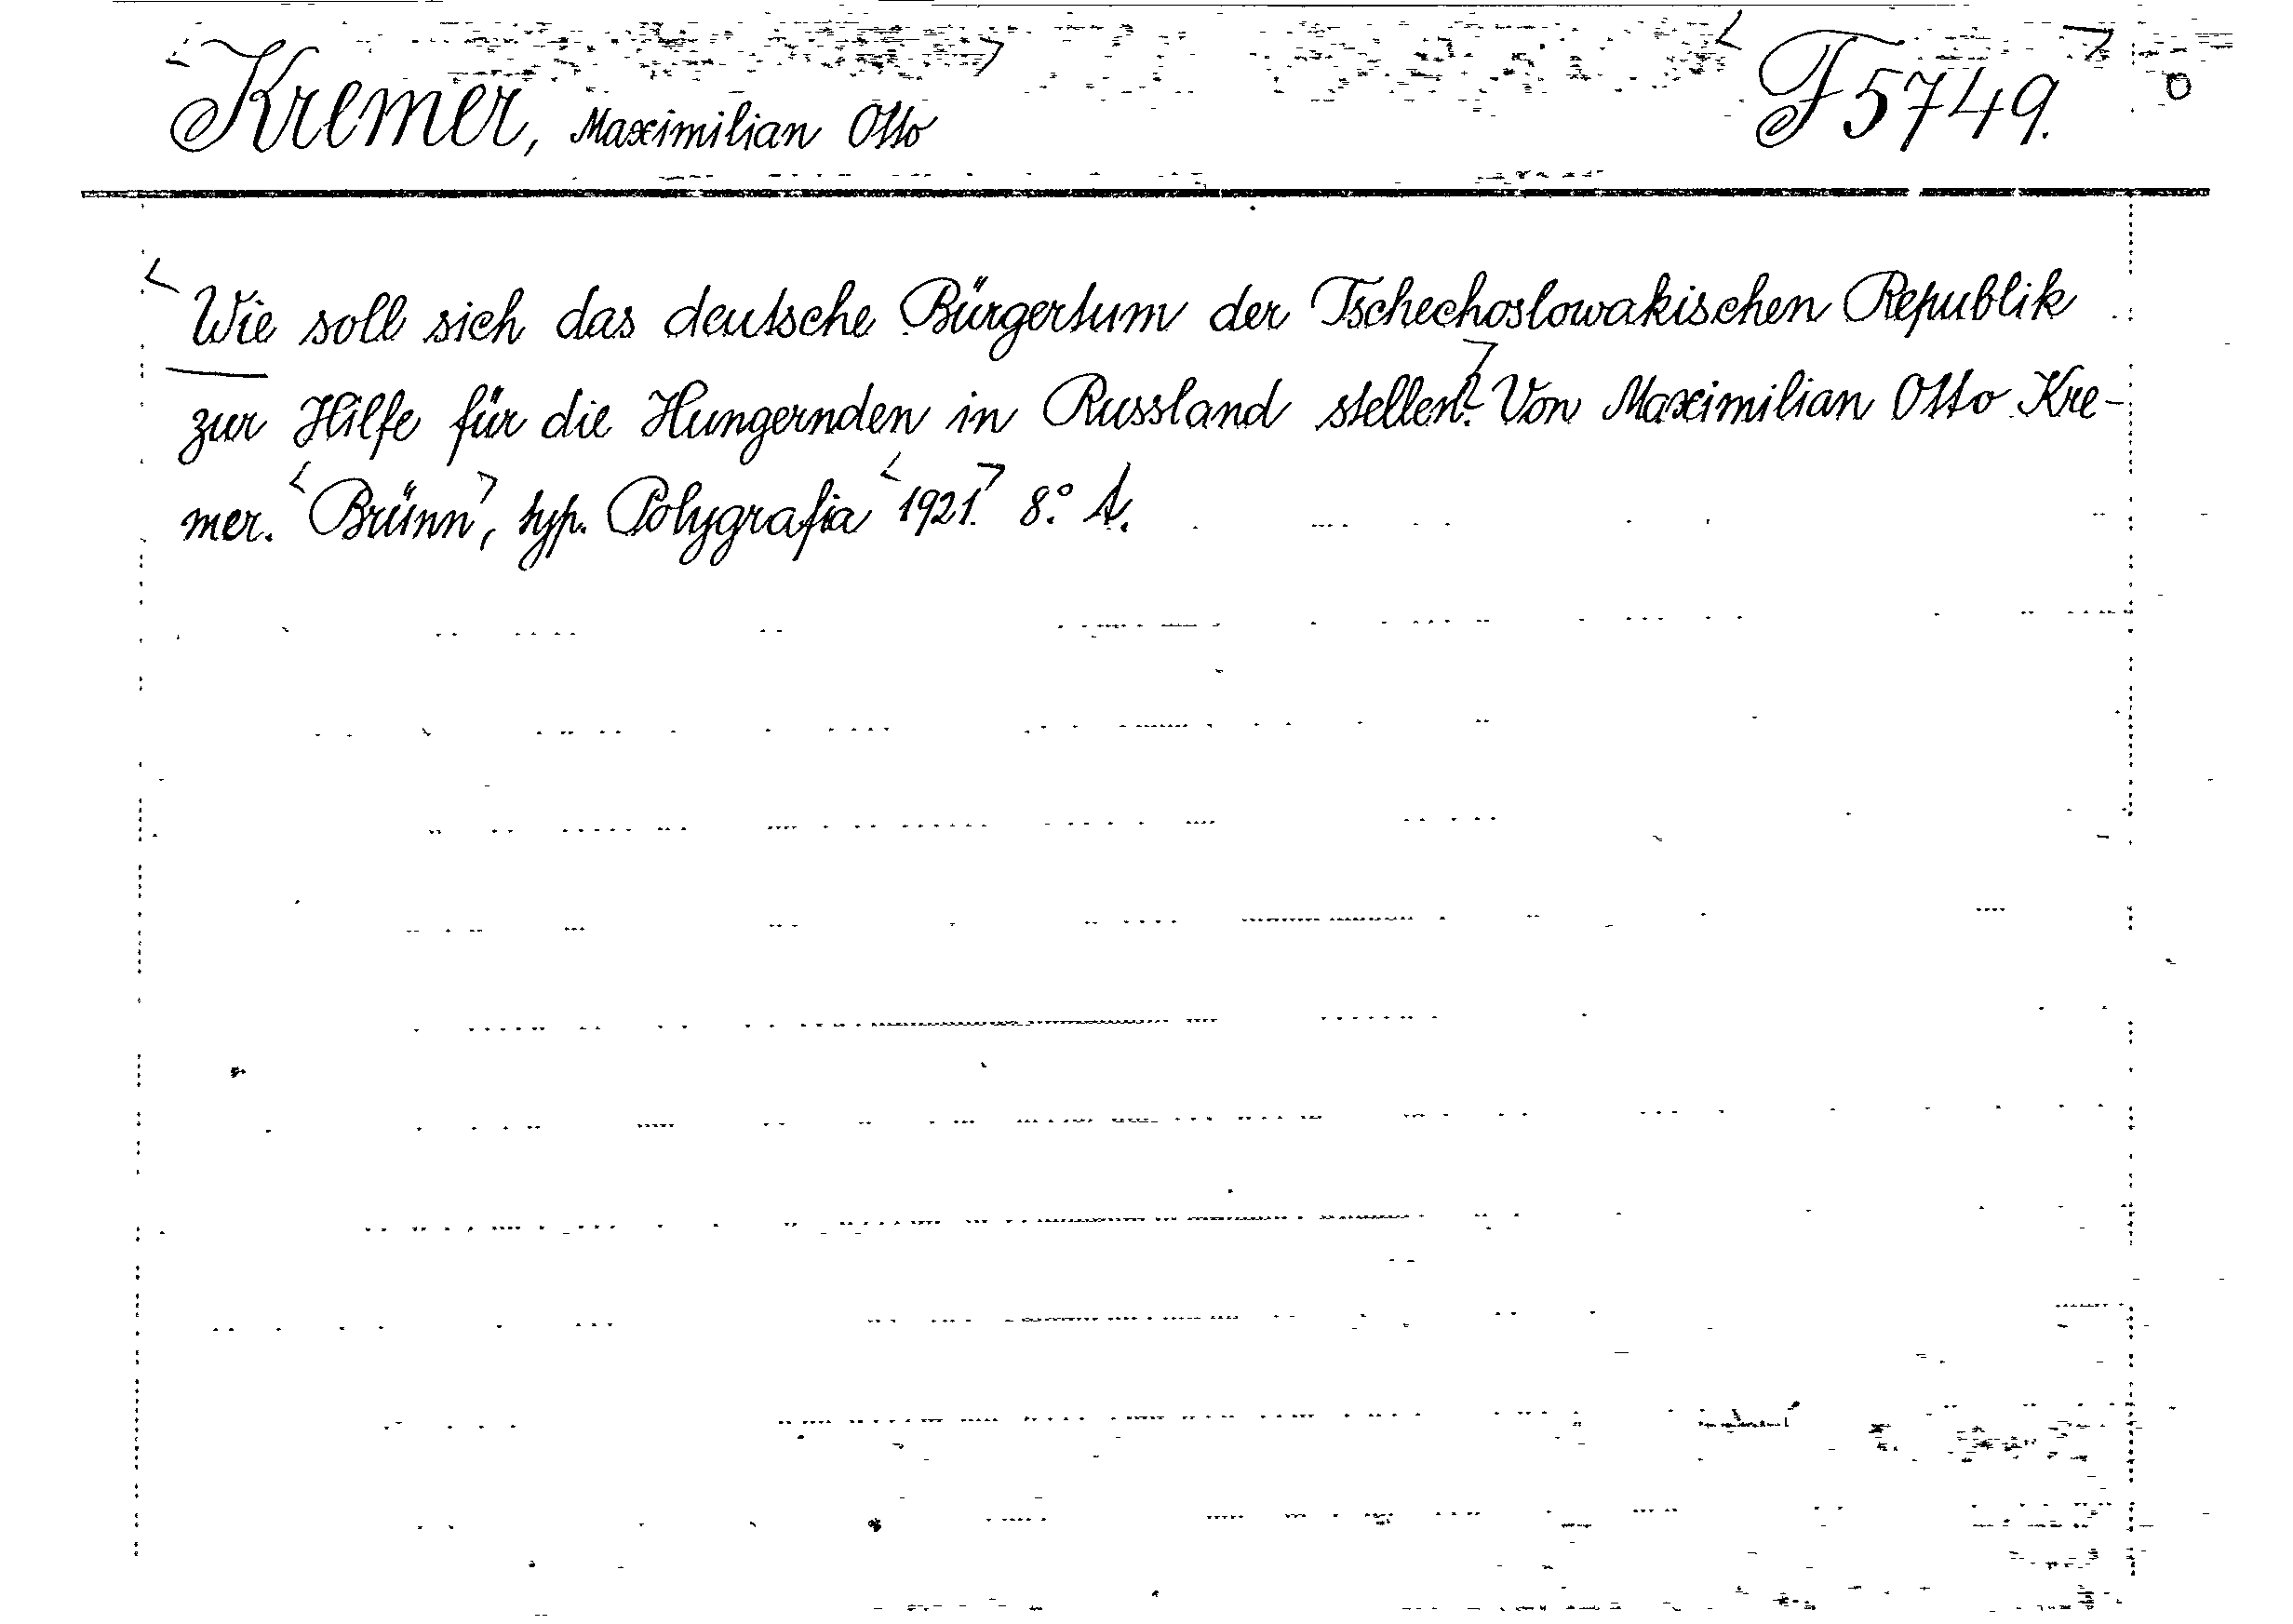 Kremer, Maximilian Otto F 5749.
Wie soll sich das deutsche Bürgertum der Tschechoslowakischen Republik
zur Hilfe für die Hungernden in Russland stellen? Von Maximilian Otto Kre-
mer. Brünn, typ. Polygrafia 1921. 8° A.